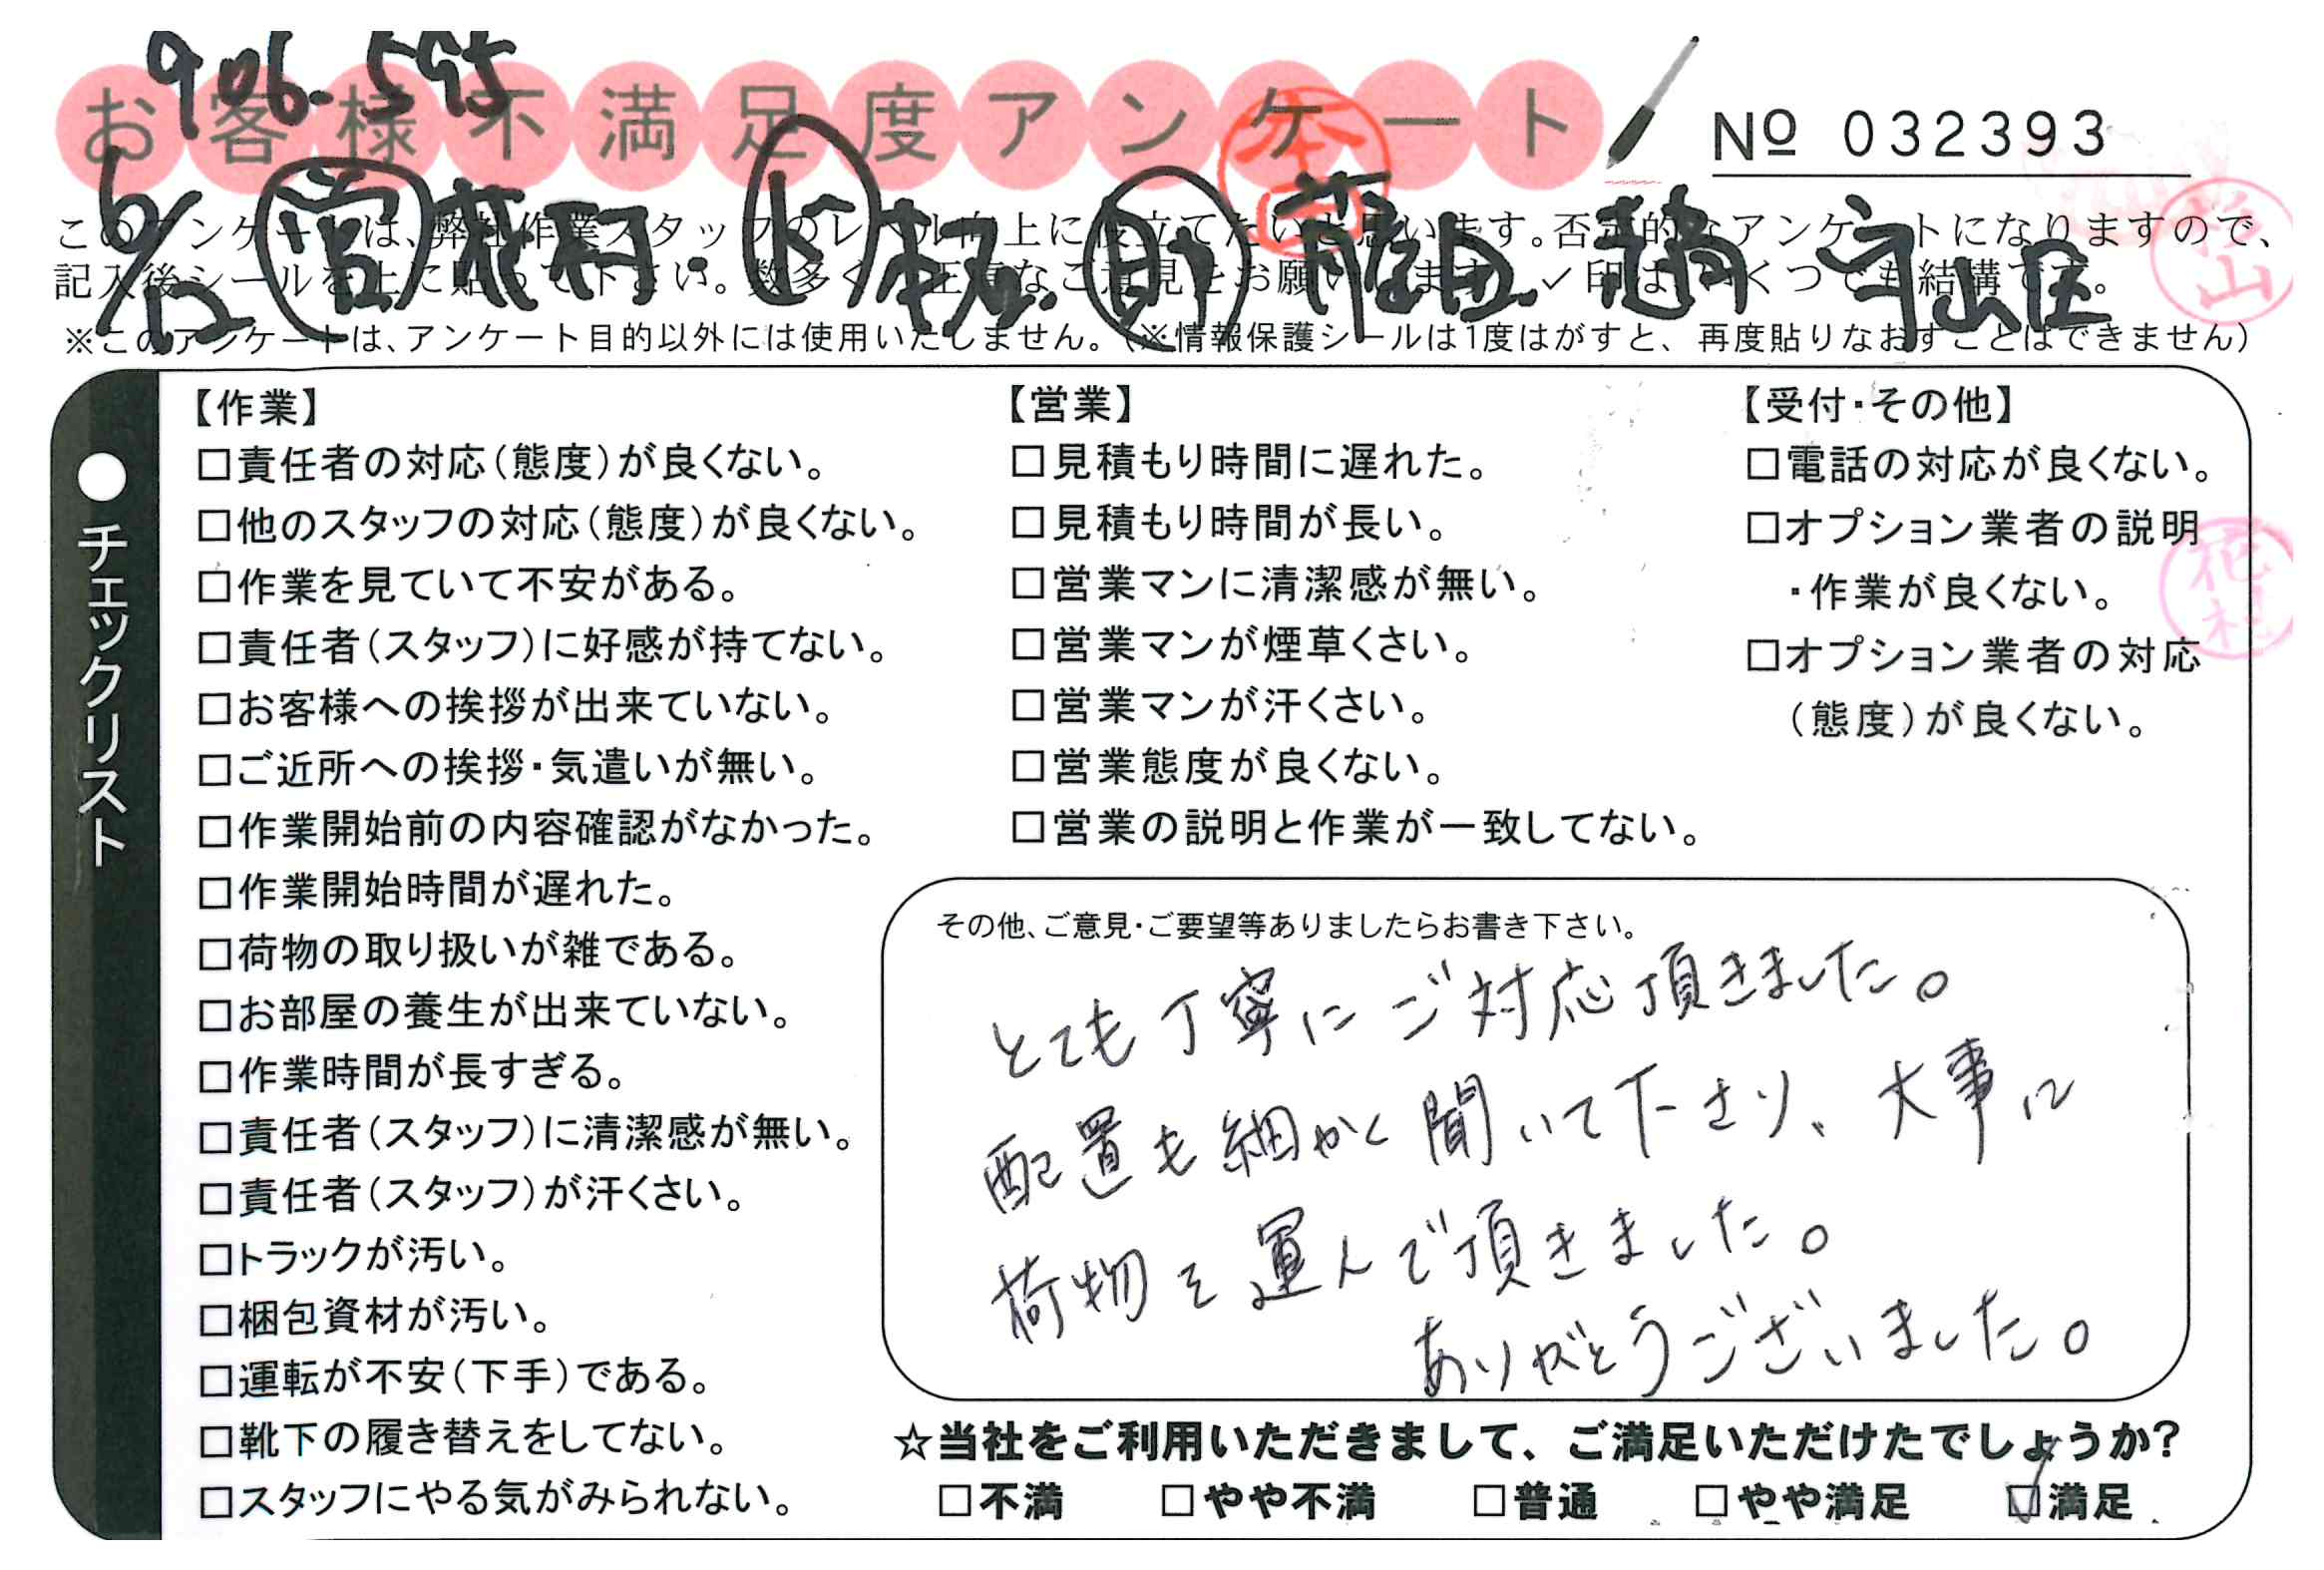 906-595
お客様不満足度アンケート
№ 032393
6/12 営 花村. ド 本田. 助 薩田. 趙 守山区
本田
杉山
このアンケートは、弊社作業スタッフのレベル向上に役立てたいと思います。否定的なアンケートになりますので、
記入後シールを上に貼って下さい。数多くの正直なご意見をお願いします。✓印はいくつでも結構です。
※このアンケートは、アンケート目的以外には使用いたしません。(※情報保護シールは1度はがすと、再度貼りなおすことはできません)
●チェックリスト
【作業】
□責任者の対応(態度)が良くない。
□他のスタッフの対応(態度)が良くない。
□作業を見ていて不安がある。
□責任者(スタッフ)に好感が持てない。
□お客様への挨拶が出来ていない。
□ご近所への挨拶・気遣いが無い。
□作業開始前の内容確認がなかった。
□作業開始時間が遅れた。
□荷物の取り扱いが雑である。
□お部屋の養生が出来ていない。
□作業時間が長すぎる。
□責任者(スタッフ)に清潔感が無い。
□責任者(スタッフ)が汗くさい。
□トラックが汚い。
□梱包資材が汚い。
□運転が不安(下手)である。
□靴下の履き替えをしてない。
□スタッフにやる気がみられない。
【営業】
□見積もり時間に遅れた。
□見積もり時間が長い。
□営業マンに清潔感が無い。
□営業マンが煙草くさい。
□営業マンが汗くさい。
□営業態度が良くない。
□営業の説明と作業が一致してない。
【受付・その他】
□電話の対応が良くない。
□オプション業者の説明
・作業が良くない。
□オプション業者の対応
(態度)が良くない。
花村
その他、ご意見・ご要望等ありましたらお書き下さい。
とても丁寧にご対応頂きました。
配置も細かく聞いて下さり、大事に
荷物を運んで頂きました。
ありがとうございました。
☆当社をご利用いただきまして、ご満足いただけたでしょうか?
□不満 □やや不満 □普通 □やや満足 ☑満足